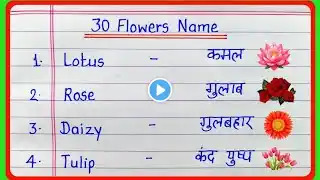 30 Flowers Name
1. Lotus - कमल
2. Rose - गुलाब
3. Daizy - गुलबहार
4. Tulip - कंद पुष्प